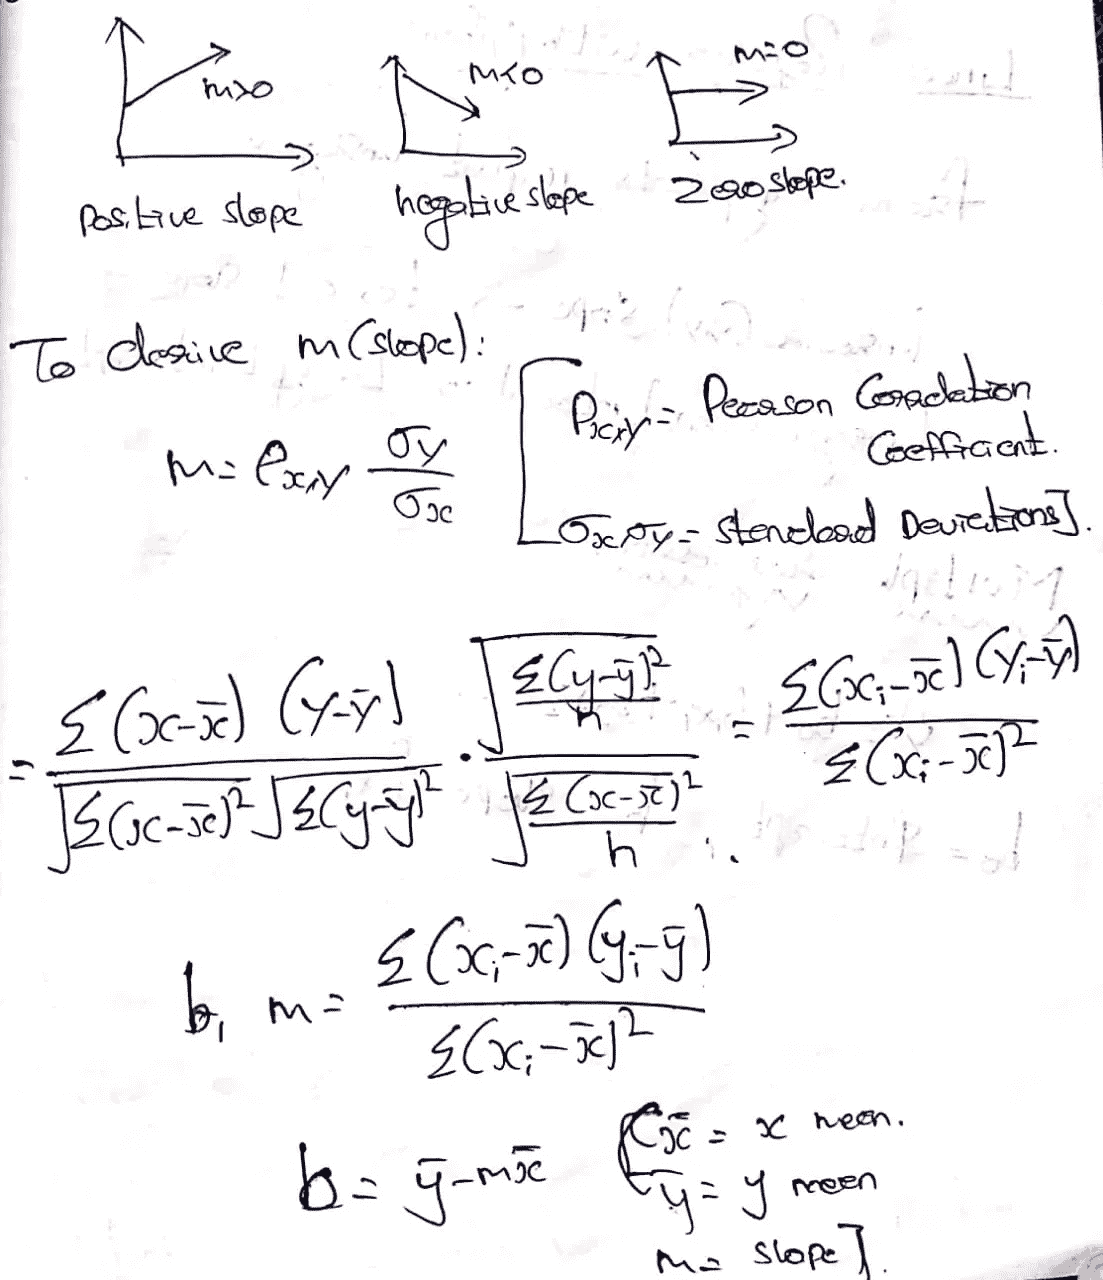 m>0 m<0 m=0
Positive slope negative slope zero slope.
To derive m (slope):
m = ρx,y σy/σx [ρx,y = Pearson Correlation Coefficient.
σx,σy = standard Deviations].
= Σ(x-x̄) (y-ȳ) / √Σ(x-x̄)² √Σ(y-ȳ)² · √(Σ(y-ȳ)²/n) / √(Σ(x-x̄)²/n) = Σ(xi-x̄) (yi-ȳ) / Σ(xi-x̄)²
b, m = Σ(xi-x̄) (yi-ȳ) / Σ(xi-x̄)²
b = ȳ-mx̄ [x̄ = x mean.
ȳ = y mean
m = slope].